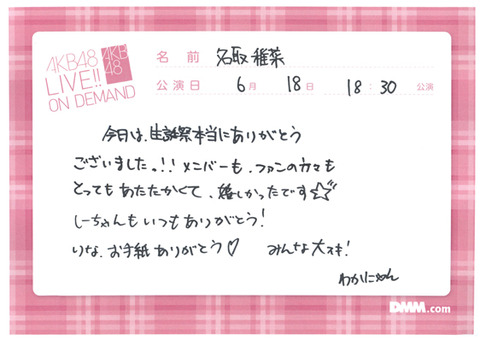 AKB48
LIVE!!
ON DEMAND
AKB
48
名 前 名取稚菜
公演日 6月 18日 18:30 公演
今日は、生誕祭本当にありがとう
ございました。!! メンバーも、ファンの方々も
とってもあたたかくて、嬉しかったです☆☆
しーちゃんもいつもありがとう!
りな、お手紙ありがとう♡ みんな大スキ!
わかにゃん
DMM.com